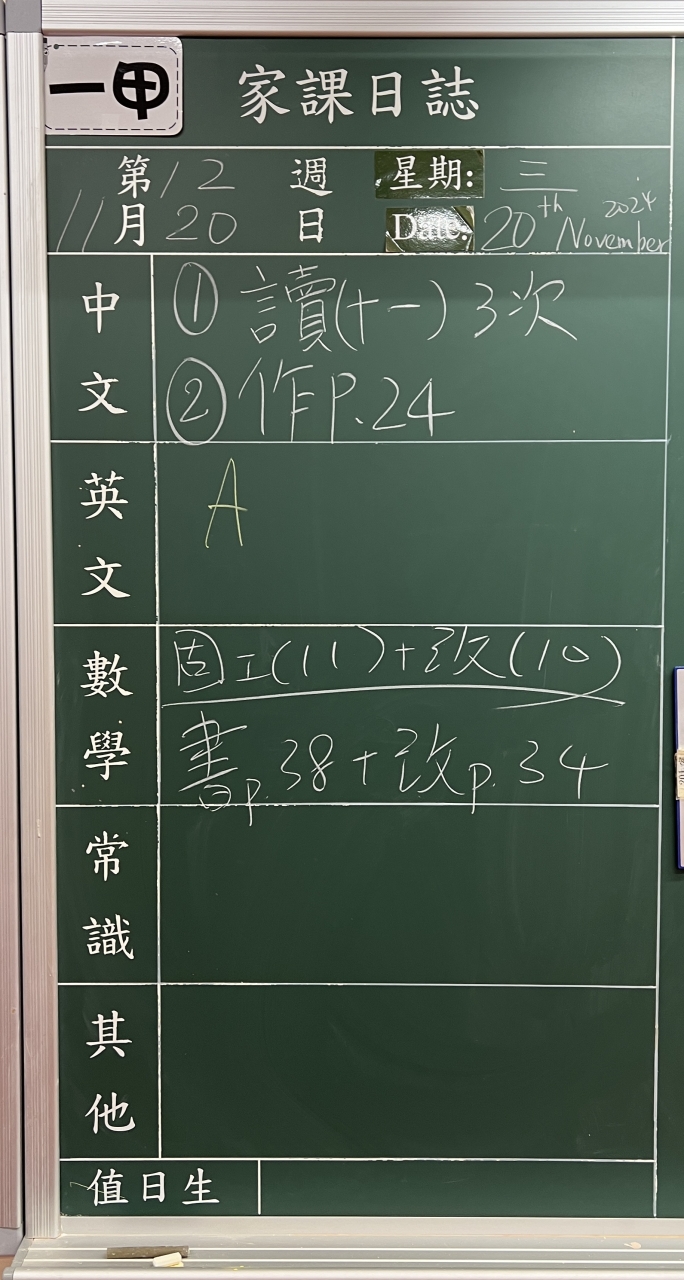 一甲
家課日誌
第12週 星期: 三
11月20日 Date: 20th November 2024
中文
① 讀(十一) 3次
② 作P.24
英文
A
數學
固工(11)+改(10)
書p.38+改p.34
常識
其他
值日生